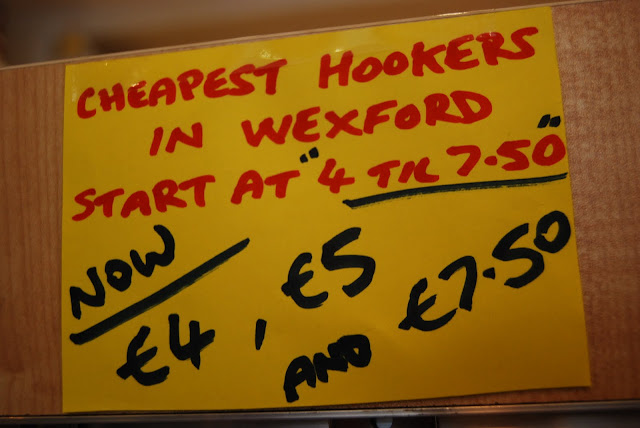 CHEAPEST HOOKERS
IN WEXFORD
START AT "4 TIL 7.50"
NOW
€4, €5
AND €7.50